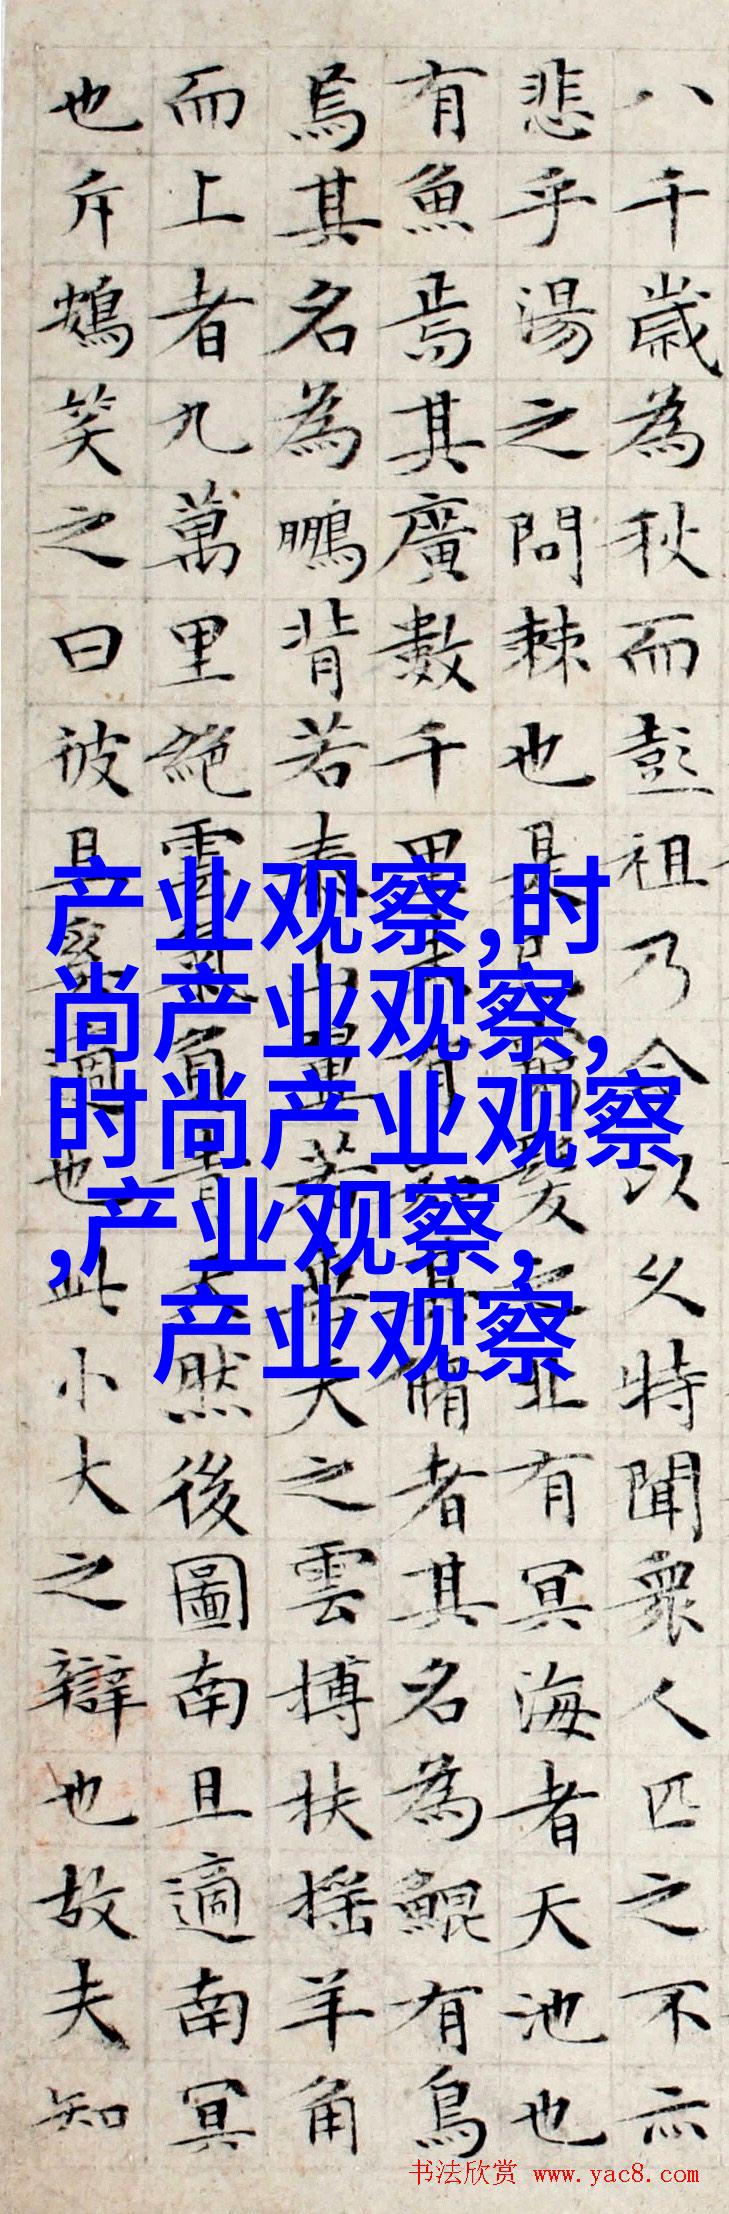 八千歲為秋而彭祖乃今以久特聞衆人匹之不亦
悲乎湯之問棘也是已窮髮之北有冥海者天池也
有魚焉其廣數千里未有知其脩者其名為鯤有鳥
焉其名為鵬背若泰山翼若垂天之雲搏扶搖羊角
而上者九萬里絕雲氣負青天然後圖南且適南冥
也斥鴳笑之曰彼且奚適也此小大之辯也故夫知
产业观察,时
尚产业观察,
时尚产业观察
,产业观察,
产业观察
书法欣赏 www.yac8.com